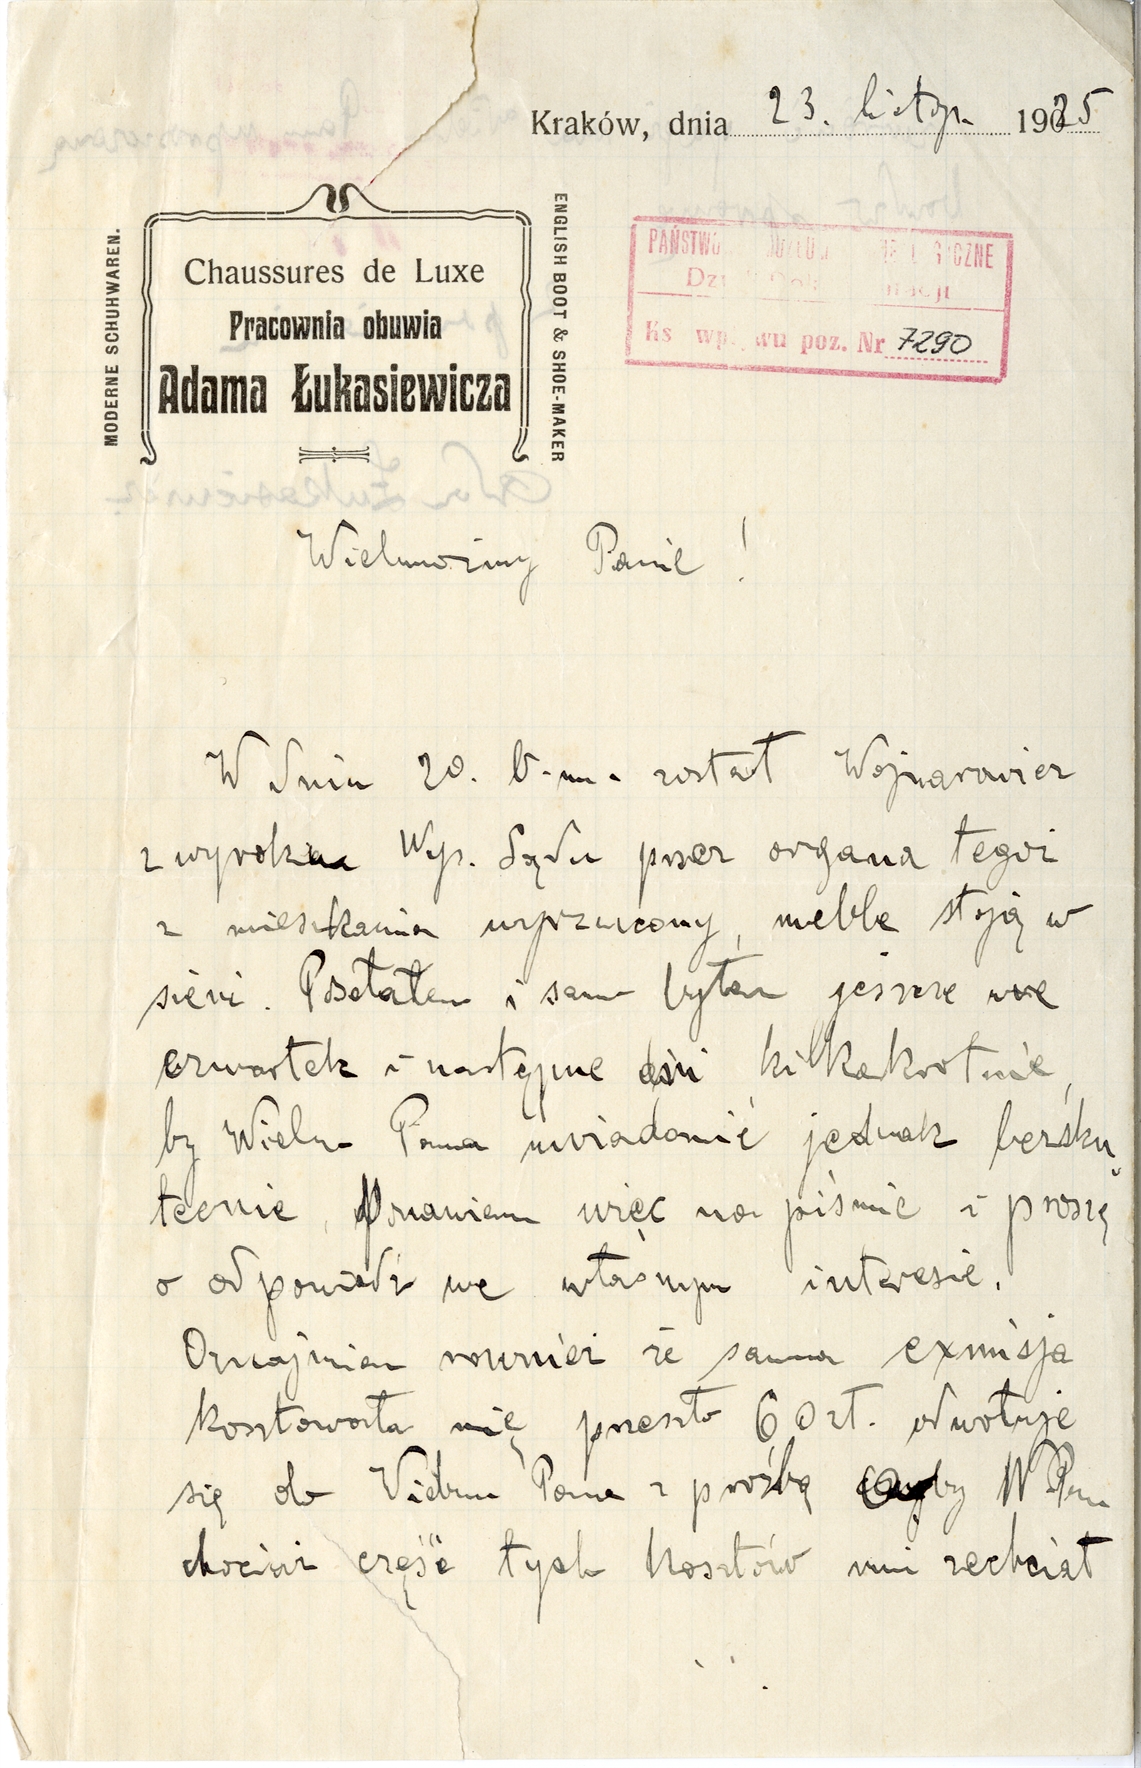 Kraków, dnia 23. listop. 1925
MODERNE SCHUHWAREN.
Chaussures de Luxe
Pracownia obuwia
Adama Łukasiewicza
ENGLISH BOOT & SHOE-MAKER
Dz
Ks wp wu poz. Nr 7290
Wielmożny Panie !
W dniu 20. b.m. został Wojnarowicz
z wyroku Wys. Sądu przez organa tegoż
z mieszkania wyrzucony, meble stoją w
sieni. Posełałem i sam byłem jeszcze we
czwartek i następne dni kilkakrotnie,
by Wielm Pana uwiadomić jednak bezsku„
tecznie, ponawiam więc na piśmie i proszę
o odpowiedź we własnym interesie.
Oznajmiam rownież że sama exmisja
kosztowała mię przeszło 60 zł. odwołuje
się do Wielm Pana z prośbą by W Pan
chociaż część tych kosztów mi zechciał